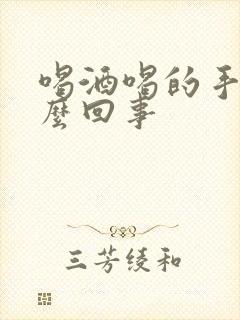 喝酒喝的手
麼回事
三芳绫和